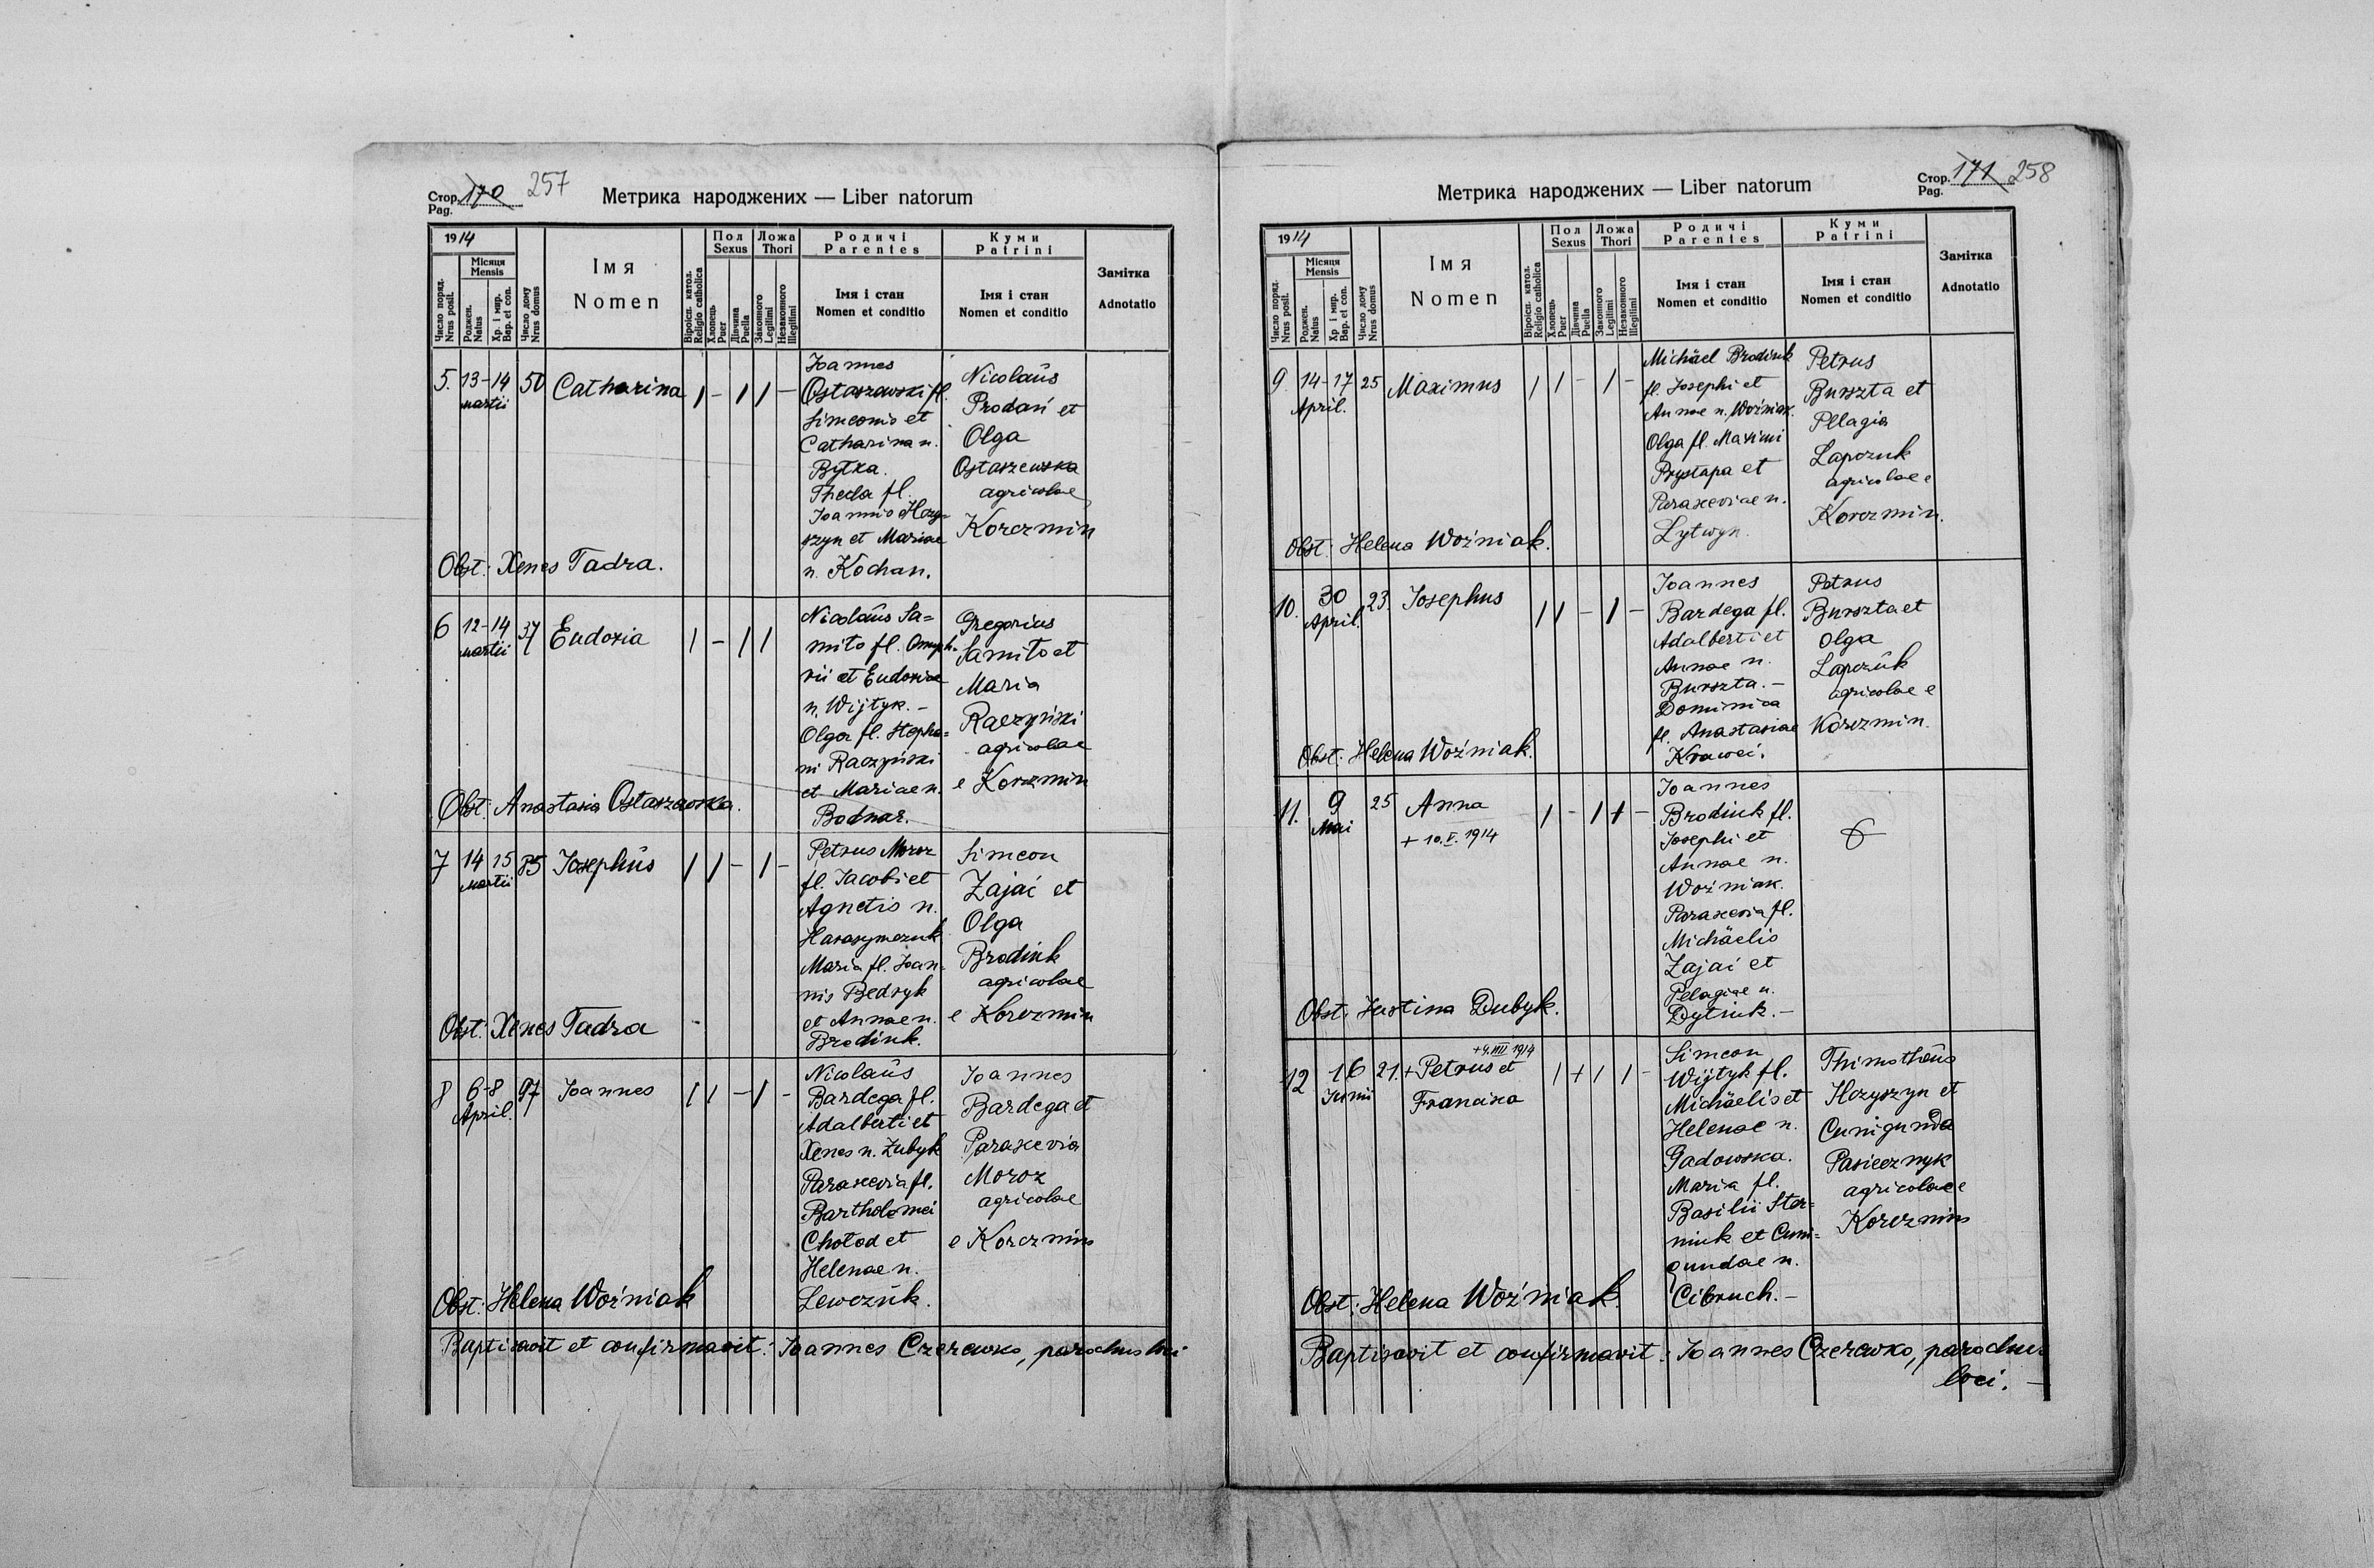 Стор. 170 257
Pag.
Метрика народжених — Liber natorum
1914
Місяця
Mensis
Число поряд.
Nrus posit.
Роджен.
Natus
Хр. і мир.
Bap. et con.
Число дому
Nrus domus
Імя
Nomen
Віроісп. катол.
Religio catholica
Пол
Sexus
Хлопець
Puer
Дівчина
Puella
Ложа
Thori
Законного
Legitimi
Незаконного
Illegitimi
Родичі
Parentes
Імя і стан
Nomen et conditio
Куми
Patrini
Імя і стан
Nomen et conditio
Замітка
Adnotatio
5. 13-14 50 Catharina / - / / -
martii
Joannes
Ostaszewski fl.
Simeonis et
Catharina n.
Bytka.
Thecla fl.
Joannis Hozy=
szyn et Mariae
n. Kochan.
Nicolaüs
Prodań et
Olga
Ostaszewska
agricolae
Korczmin
Obst: Xenes Tadra.
6 12-14 37 Eudoxia / - / /
martii
Nicolaüs Sa=
miło fl. Onuph=
rii et Eudoxiae
n. Wijtyk. -
Olga fl. Stepha=
ni Raczyński
et Mariae n.
Bodnar.
Gregorius
Samiło et
Maria
Raczyński
agricolae
e Korczmin
Obst: Anastasia Ostaszewska.
7 14 15 85 Josephüs / / - / -
martii
Petrus Moroz
fl. Jacobi et
Agnetis n.
Harasymczuk
Maria fl. Joan=
nis Bedryk
et Annae n.
Brodiuk.
Simeon
Zajać et
Olga
Brodiuk
agricolae
e Korczmin
Obst: Xenes Tadra
8 6-8 97 Joannes / / - / -
April.
Nicolaüs
Bardega fl.
Adalberti et
Xenes n. Zubyk
Parascevia fl.
Bartholomei
Chołod et
Helenae n.
Lewczük.
Joannes
Bardega et
Parascevia
Moroz
agricolae
e Korczmin
Obst: Helena Woźniak
Baptisavit et confirmavit: Joannes Czerewko, parochus loci
Стор. 171 258
Pag.
Метрика народжених — Liber natorum
1914
Місяця
Mensis
Число поряд.
Nrus posit.
Роджен.
Natus
Хр. і мир.
Bap. et con.
Число дому
Nrus domus
Імя
Nomen
Віроісп. катол.
Religio catholica
Пол
Sexus
Хлопець
Puer
Дівчина
Puella
Ложа
Thori
Законного
Legitimi
Незаконного
Illegitimi
Родичі
Parentes
Імя і стан
Nomen et conditio
Куми
Patrini
Імя і стан
Nomen et conditio
Замітка
Adnotatio
9. 14-17 25 Maximus / / - / -
April.
Michäel Brodiuk
fl. Josephi et
Annae n. Woźniak.
Olga fl. Maximi
Prystapa et
Parasceviae n.
Lytwyn.
Petrus
Burszta et
Pelagia
Lapczuk
agricolae e
Korczmin.
Obst: Helena Woźniak.
10. 30 23. Josephus / / - / -
April.
Joannes
Bardega fl.
Adalberti et
Annae n.
Burszta. -
Dominica
fl. Anastasiae
Krawci.
Petrus
Burszta et
Olga
Lapczük
agricolae e
Korczmin.
Obst: Helena Woźniak.
11. 9 25 Anna / - / + -
Mai
+ 10.V.1914
Joannes
Brodiuk fl.
Josephi et
Annae n.
Woźniak.
Parascevia fl.
Michäelis
Zajać et
Pelagiae n.
Dytiuk. -
Obst. Justina Dubyk.
+4.VIII 1914
12 16 21. + Petrus et / + / / -
Junii
Francisca
Simeon
Wijtyk fl.
Michäelis et
Helenae n.
Gadowska.
Maria fl.
Basilii Ster=
niuk et Cuni=
gundae n.
Cibruch. -
Thimotheüs
Hozyszyn et
Cunigunda
Pasiecznyk
agricolae e
Korczmin
Obst: Helena Woźniak.
Baptisavit et confirmavit: Joannes Czerewko, parochus
loci. -